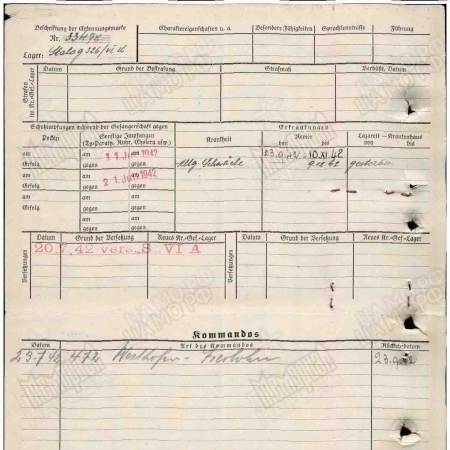 Beschriftung der Erkennungsmarke
Nr. 33490
Lager: Stalag 326/VI K
Charaktereigenschaften u. a.
Besondere Fähigkeiten
Sprachkenntnisse
Führung
Strafen im Kr.-Gef.-Lager
Datum Grund der Bestrafung Strafmaß Verbüßt, Datum
Schutzimpfungen während der Gefangenschaft gegen
Pocken
Sonstige Impfungen
(Ty-Paraty. Ruhr, Cholera usw.)
Erkrankungen
Krankheit
Revier
von bis
Lazarett — Krankenhaus
von bis
am am 1 1. 1942
Erfolg gegen
am am 2 1. 1942
Erfolg gegen
am am
Erfolg gegen
am am
Erfolg gegen
am
gegen
am
gegen
Allg. Schwäche 23.9.42 10.XI.42
gestorben
Versetzungen
Datum Grund der Versetzung Neues Kr.-Gef.-Lager
20.7.42 vers. S VI A
Versetzungen
Datum Grund der Versetzung Neues Kr.-Gef.-Lager
Kommandos
Datum Art des Kommandos Rückkehrdatum
23.7.42 472 Westhofen - Iserlohn 23.9.42